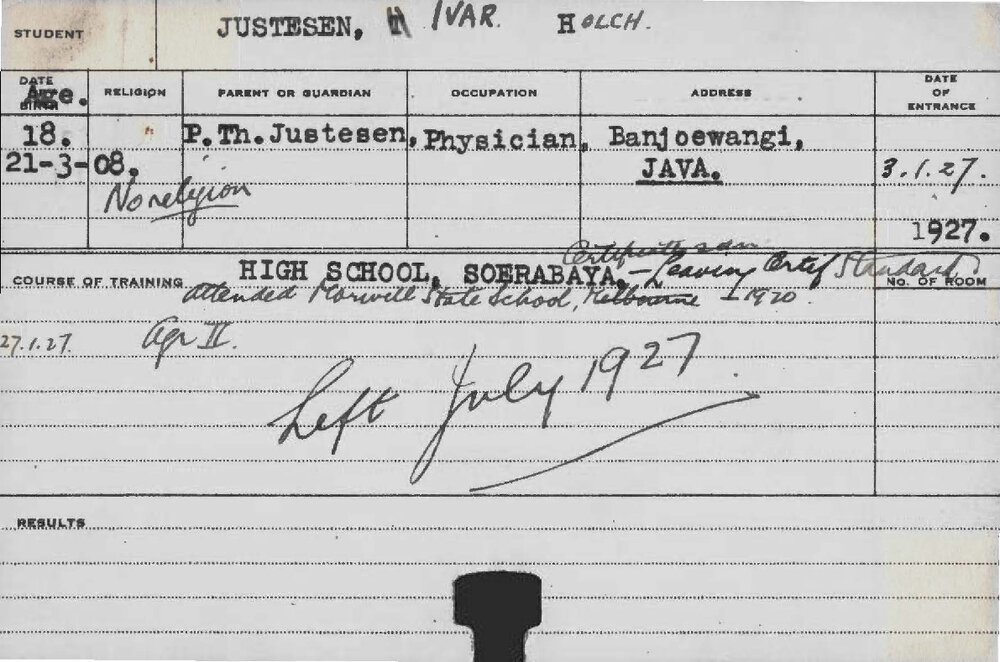 STUDENT JUSTESEN, IVAR. HOLCH.
DATE OF BIRTH Age. RELIGION PARENT OR GUARDIAN OCCUPATION ADDRESS DATE OF ENTRANCE
18. P.Th.Justesen, Physician, Banjoewangi,
21-3-08. JAVA. 3.1.27.
No religion
1927.
Certificate seen
COURSE OF TRAINING HIGH SCHOOL, SOERABAYA. - Leaving Certif Standard NO. OF ROOM
attended Morwell State School, Melbourne - 1920.
27.1.27. Agr II.
Left July 1927.
RESULTS